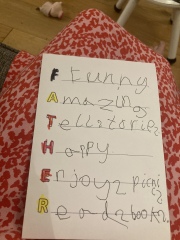 F funny
Amazing
Tellstories
Happy
Enjoyz picnic
Readabooks